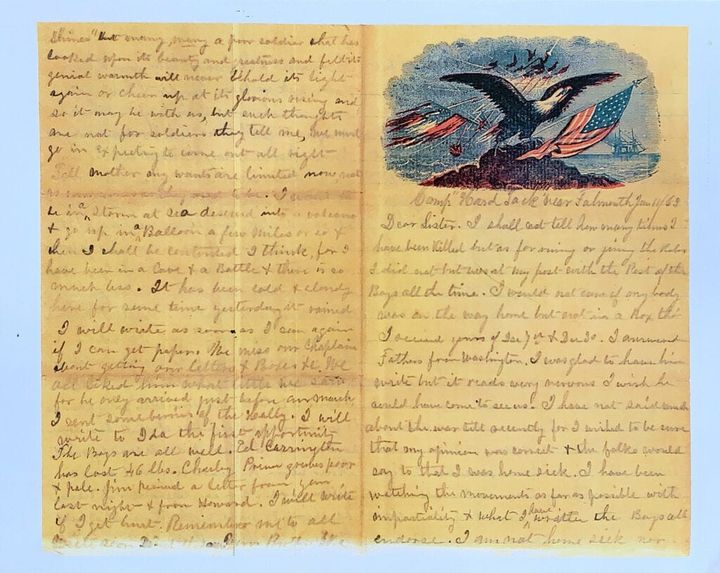 shines" but many, many a poor soldier that has
looked upon its beauty and greatness and felt its
genial warmth will never behold its light
again or cheer up at its glorious rising and
so it may be with us, but such thoughts
are not for soldiers they tell me, we must
go in expecting to come out all right
Tell mother my wants are limited now not
as they used to be. I want to
be in a storm at sea descend into a volcano
& go up in a Balloon a few miles or so &
then I shall be contented I think, for I
have been in a Cave & a Battle & there is so
much less. It has been cold & cloudy
here for some time yesterday it rained
I will write as soon as I can again
if I can get paper. We miss our Chaplain
about getting our Letters & Boxes &c. We
all liked him what little we saw
for he only arrived just before our march
I send some berries of the Holly. I will
write to Ida the first opportunity
The Boys are all well. Ed Carrington
has lost 46 lbs. Charley Prim grows poor
& pale. Jim received a letter from
last night & from Howard. I will write
if I get hurt. Remember me to all
Camp "Hard Tack near Falmouth Jan 11/63
Dear Sister. I shall not tell how many times I
have been killed but as for running or joining the Rebs
I did not but was at my post with the Rest of the
Boys all the time. I would not care if my body
was on the way home but not in a Box tho
I received yours of Dec 7th & Dec 30. I answered
Fathers from Washington. I was glad to have him
write but it reads very nervous I wish he
could have come to see us. I have not said much
about the war till recently for I wished to be sure
that my opinion was correct & the folks would
say to that I was home sick. I have been
watching the movements as far as possible with
impartiality & what I have written the Boys all
endorse. I am not home sick nor